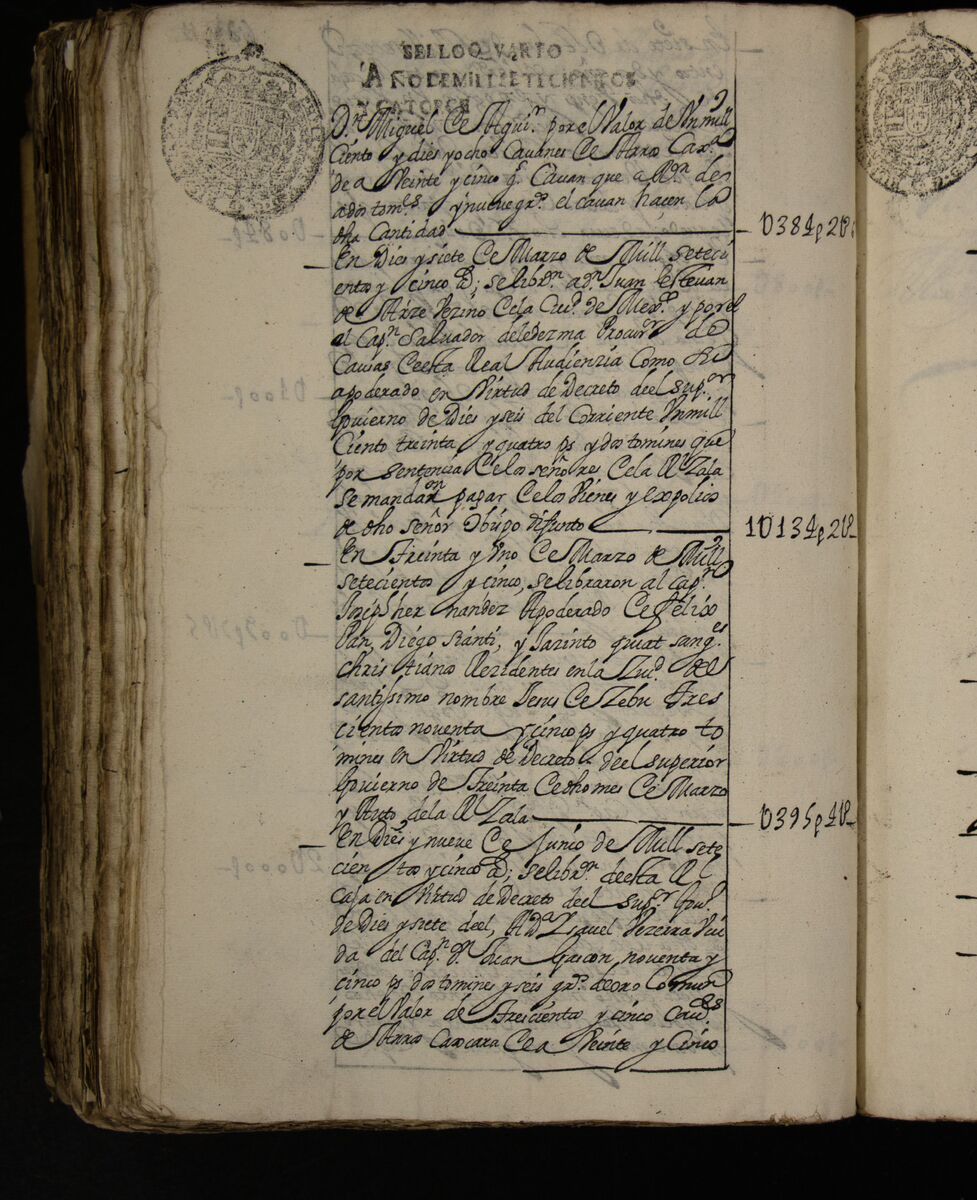 SELLO QVARTO
AÑO DE MIL SETECIENTOS
Y CATORCE
Dn Miguel de por el Valor de Un mill
Ciento y dies y ocho Cavanes de Arros Cascra
de a Veinte y cinco gs Cavan que a Rn de
a dos toms y nueve grs el cavan hacen la
dha Cantidad — U384p2U
En Dies y siete de Marzo de Mill seteci
entos y cinco as; se libron a Dn Juan Estevan
de Arze Vezino de la Ciud de Mexco y por el
al Capn Salvador de ledezma Procurr de
Causas de esta Real Audienzia Como su
apoderado en Virtud de Decreto del supor
Govierno de Dies y seis del Corriente Un mill
Ciento treinta y quatro ps y dos tomines que
por sentencia de los señores de la Rl Zala
se mandaron pagar de los Vienes y expolios
de dho señor obispo difunto — 1U134p2U
En Treinta y Uno de Marzo de Mill
setecientos y cinco, se libraron al Capn
Joseph hernandez Apoderado de felix
Pan, Diego Sianti, y Jazinto quiat sangles
christianos Rezidentes en la Ziud del
santissimo nombre Jesus de Zebu tres
cientos noventa y cinco ps y quatro to
mines en Virtud de Decreto del superior
Govierno de Treinta de dho mes de Marzo
y Auto de la Rl Zala — U395p4U
En Dies y nueve de Junio de Mill sete
cientos y cinco as; se libron de esta Rl
Caja en Virtud de Decreto del supor Govno
de Dies y siete del, A Da Ysavel Vezerra Viu
da del Capn Dn Juan Gascon, noventa y
cinco ps dos tomines y seis grs de oro Comun
por el Valor de Trescientos y cinco Cavs
de Arros Cascara de a Veinte y Cinco